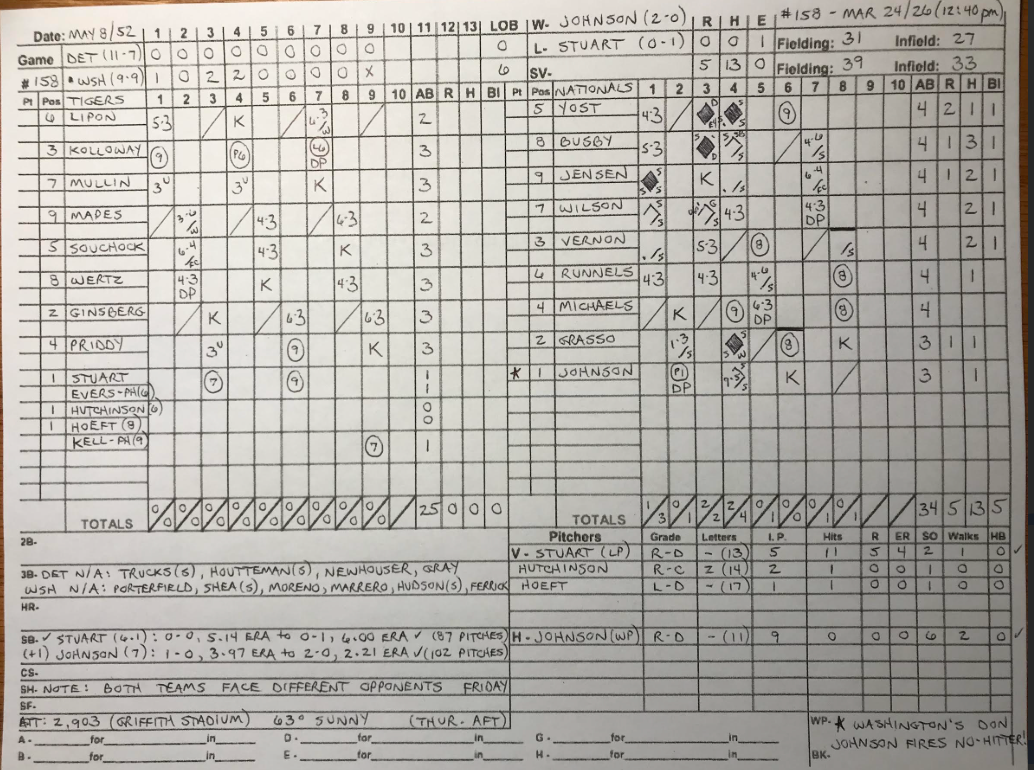 Date: MAY 8/52 1 2 3 4 5 6 7 8 9 10 11 12 13 LOB W- JOHNSON (2-0) R H E #158 - MAR 24/26 (12:40 pm)
Game DET (11-7) 0 0 0 0 0 0 0 0 0 0 L- STUART (0-1) 0 0 1 Fielding: 31 Infield: 27
#158 • WSH (9-9) 1 0 2 2 0 0 0 0 X 6 SV- 5 13 0 Fielding: 39 Infield: 33
Pt Pos TIGERS 1 2 3 4 5 6 7 8 9 10 AB R H BI Pt Pos NATIONALS 1 2 3 4 5 6 7 8 9 10 AB R H BI
6 LIPON 5-3 K 6-3 /W 2 5 YOST 4-3 D E4 S 9 4 2 1 1
3 KOLLOWAY 9 P6 L6 DP 3 8 BUSBY 5-3 S D S-SB /S 4-6 /S 4 1 3 1
7 MULLIN 3U 3U K 3 9 JENSEN S S K ./S 6-4 /FC 4 1 2 1
9 MAPES 3-6 /W 4-3 6-3 2 7 WILSON /S G /S 4-3 4-3 DP 4 2 1
5 SOUCHOCK 6-4 FC 4-3 K 3 3 VERNON ./S 5-3 8 /S 4 2 1
8 WERTZ 4-3 DP K 4-3 3 6 RUNNELS 4-3 4-3 4-6 /S 8 4 1
2 GINSBERG K 6-3 6-3 3 4 MICHAELS K 9 6-3 DP 8 4
4 PRIDDY 3U 9 K 3 2 GRASSO 1-3 /S S S W 8 K 3 1 1
1 STUART 7 9 1 * 1 JOHNSON P1 DP 9-5 S /S K 3 1
EVERS-PH(6) 1
1 HUTCHINSON (6) 0
1 HOEFT (8) 0
KELL-PH(9) 7 1
TOTALS 0/0 0/0 0/0 0/0 0/0 0/0 0/0 0/0 0/0 25 0 0 0 TOTALS 1/3 0/1 2/2 2/4 0/1 0/0 0/1 0/1 34 5 13 5
2B- Pitchers Grade Letters I.P. Hits R ER SO Walks HB
V - STUART (LP) R-D - (13) 5 11 5 4 2 1 0 ✓
3B- DET N/A: TRUCKS(S), HOUTTEMAN(S), NEWHOUSER, GRAY HUTCHINSON R-C 2 (14) 2 1 0 0 1 0 0
WSH N/A: PORTERFIELD, SHEA(S), MORENO, MARRERO, HUDSON(S), FERRICK HOEFT L-D - (17) 1 1 0 0 1 0 0
HR-
SB- ✓ STUART (6.1): 0-0, 5.14 ERA to 0-1, 6.00 ERA ✓ (87 PITCHES) H - JOHNSON (WP) R-D - (11) 9 0 0 0 6 2 0 ✓
(+1) JOHNSON (7): 1-0, 3.97 ERA to 2-0, 2.21 ERA ✓ (102 PITCHES)
CS-
SH- NOTE: BOTH TEAMS FACE DIFFERENT OPPONENTS FRIDAY
SF-
ATT: 2,903 (GRIFFITH STADIUM) 63° SUNNY (THUR. AFT) WP- * WASHINGTON'S DON
A - for in D - for in G - for in JOHNSON FIRES NO-HITTER!
B - for in E - for in H - for in BK-